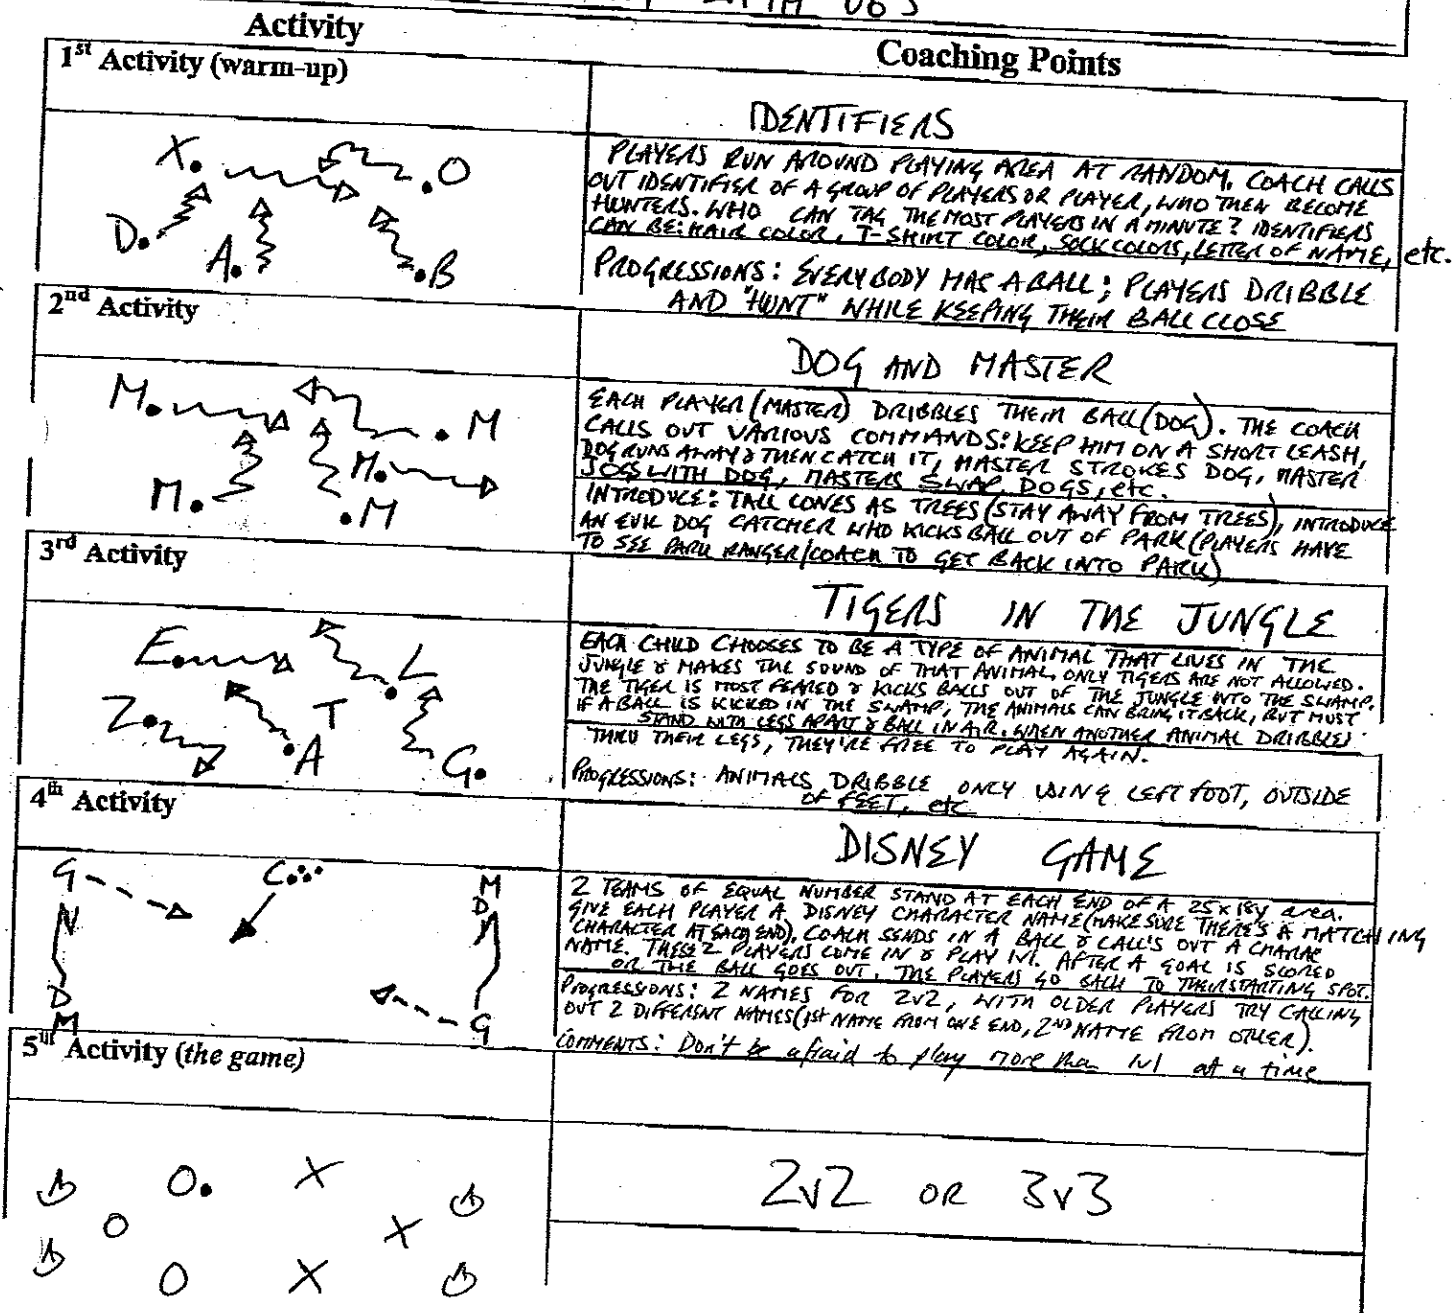 U6'S
Activity
Coaching Points
1st Activity (warm-up)
IDENTIFIERS
X. O
D. A. B
PLAYERS RUN AROUND PLAYING AREA AT RANDOM. COACH CALLS
OUT IDENTIFIER OF A GROUP OF PLAYERS OR PLAYER, WHO THEN BECOME
HUNTERS. WHO CAN TAG THE MOST PLAYERS IN A MINUTE? IDENTIFIERS
CAN BE: HAIR COLOR, T-SHIRT COLOR, SOCK COLORS, LETTER OF NAME, etc.
PROGRESSIONS: EVERYBODY HAS A BALL; PLAYERS DRIBBLE
AND "HUNT" WHILE KEEPING THEIR BALL CLOSE
2nd Activity
DOG AND MASTER
M. M
M. M. M
EACH PLAYER (MASTER) DRIBBLES THEIR BALL (DOG). THE COACH
CALLS OUT VARIOUS COMMANDS: KEEP HIM ON A SHORT LEASH,
DOG RUNS AWAY & THEN CATCH IT, MASTER STROKES DOG, MASTER
JOGS WITH DOG, MASTERS SWAP DOGS, etc.
INTRODUCE: TALL CONES AS TREES (STAY AWAY FROM TREES), INTRODUCE
AN EVIL DOG CATCHER WHO KICKS BALL OUT OF PARK (PLAYERS HAVE
TO SEE PARK RANGER/COACH TO GET BACK INTO PARK)
3rd Activity
TIGERS IN THE JUNGLE
E. L
Z. T
A G.
EACH CHILD CHOOSES TO BE A TYPE OF ANIMAL THAT LIVES IN THE
JUNGLE & MAKES THE SOUND OF THAT ANIMAL, ONLY TIGERS ARE NOT ALLOWED.
THE TIGER IS MOST FEARED & KICKS BALLS OUT OF THE JUNGLE INTO THE SWAMP.
IF A BALL IS KICKED IN THE SWAMP, THE ANIMALS CAN BRING IT BACK, BUT MUST
STAND WITH LEGS APART & BALL IN AIR. WHEN ANOTHER ANIMAL DRIBBLES
THRU THEIR LEGS, THEY'RE FREE TO PLAY AGAIN.
PROGRESSIONS: ANIMALS DRIBBLE ONLY USING LEFT FOOT, OUTSIDE
OF FEET, etc
4th Activity
DISNEY GAME
G C M
D
D
M G
2 TEAMS OF EQUAL NUMBER STAND AT EACH END OF A 25x18y area.
GIVE EACH PLAYER A DISNEY CHARACTER NAME (MAKE SURE THERE'S A MATCHING
CHARACTER AT EACH END). COACH SENDS IN A BALL & CALL'S OUT A CHARAC
NAME. THESE 2 PLAYERS COME IN & PLAY 1v1. AFTER A GOAL IS SCORED
OR THE BALL GOES OUT, THE PLAYERS GO BACK TO THEIR STARTING SPOT.
PROGRESSIONS: 2 NAMES FOR 2v2, WITH OLDER PLAYERS TRY CALLING
OUT 2 DIFFERENT NAMES (1st NAME FROM ONE END, 2ND NAME FROM OTHER).
COMMENTS: Don't be afraid to play more than 1v1 at a time
5th Activity (the game)
O. X
O X
O X
2v2 OR 3v3